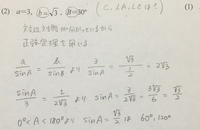 (2) a=3, b=√3, B=30° (C, ∠A, ∠C は? (1)
正弦定理を用いる
a/sinA = b/sinB より 3/sinA = √3/(1/2) = 2√3
sinA/3 = 1/2√3 より sinA = 3/2√3 = 3√3/6 = √3/2
0°<A<180°より sinA = √3/2 は 60°, 120°